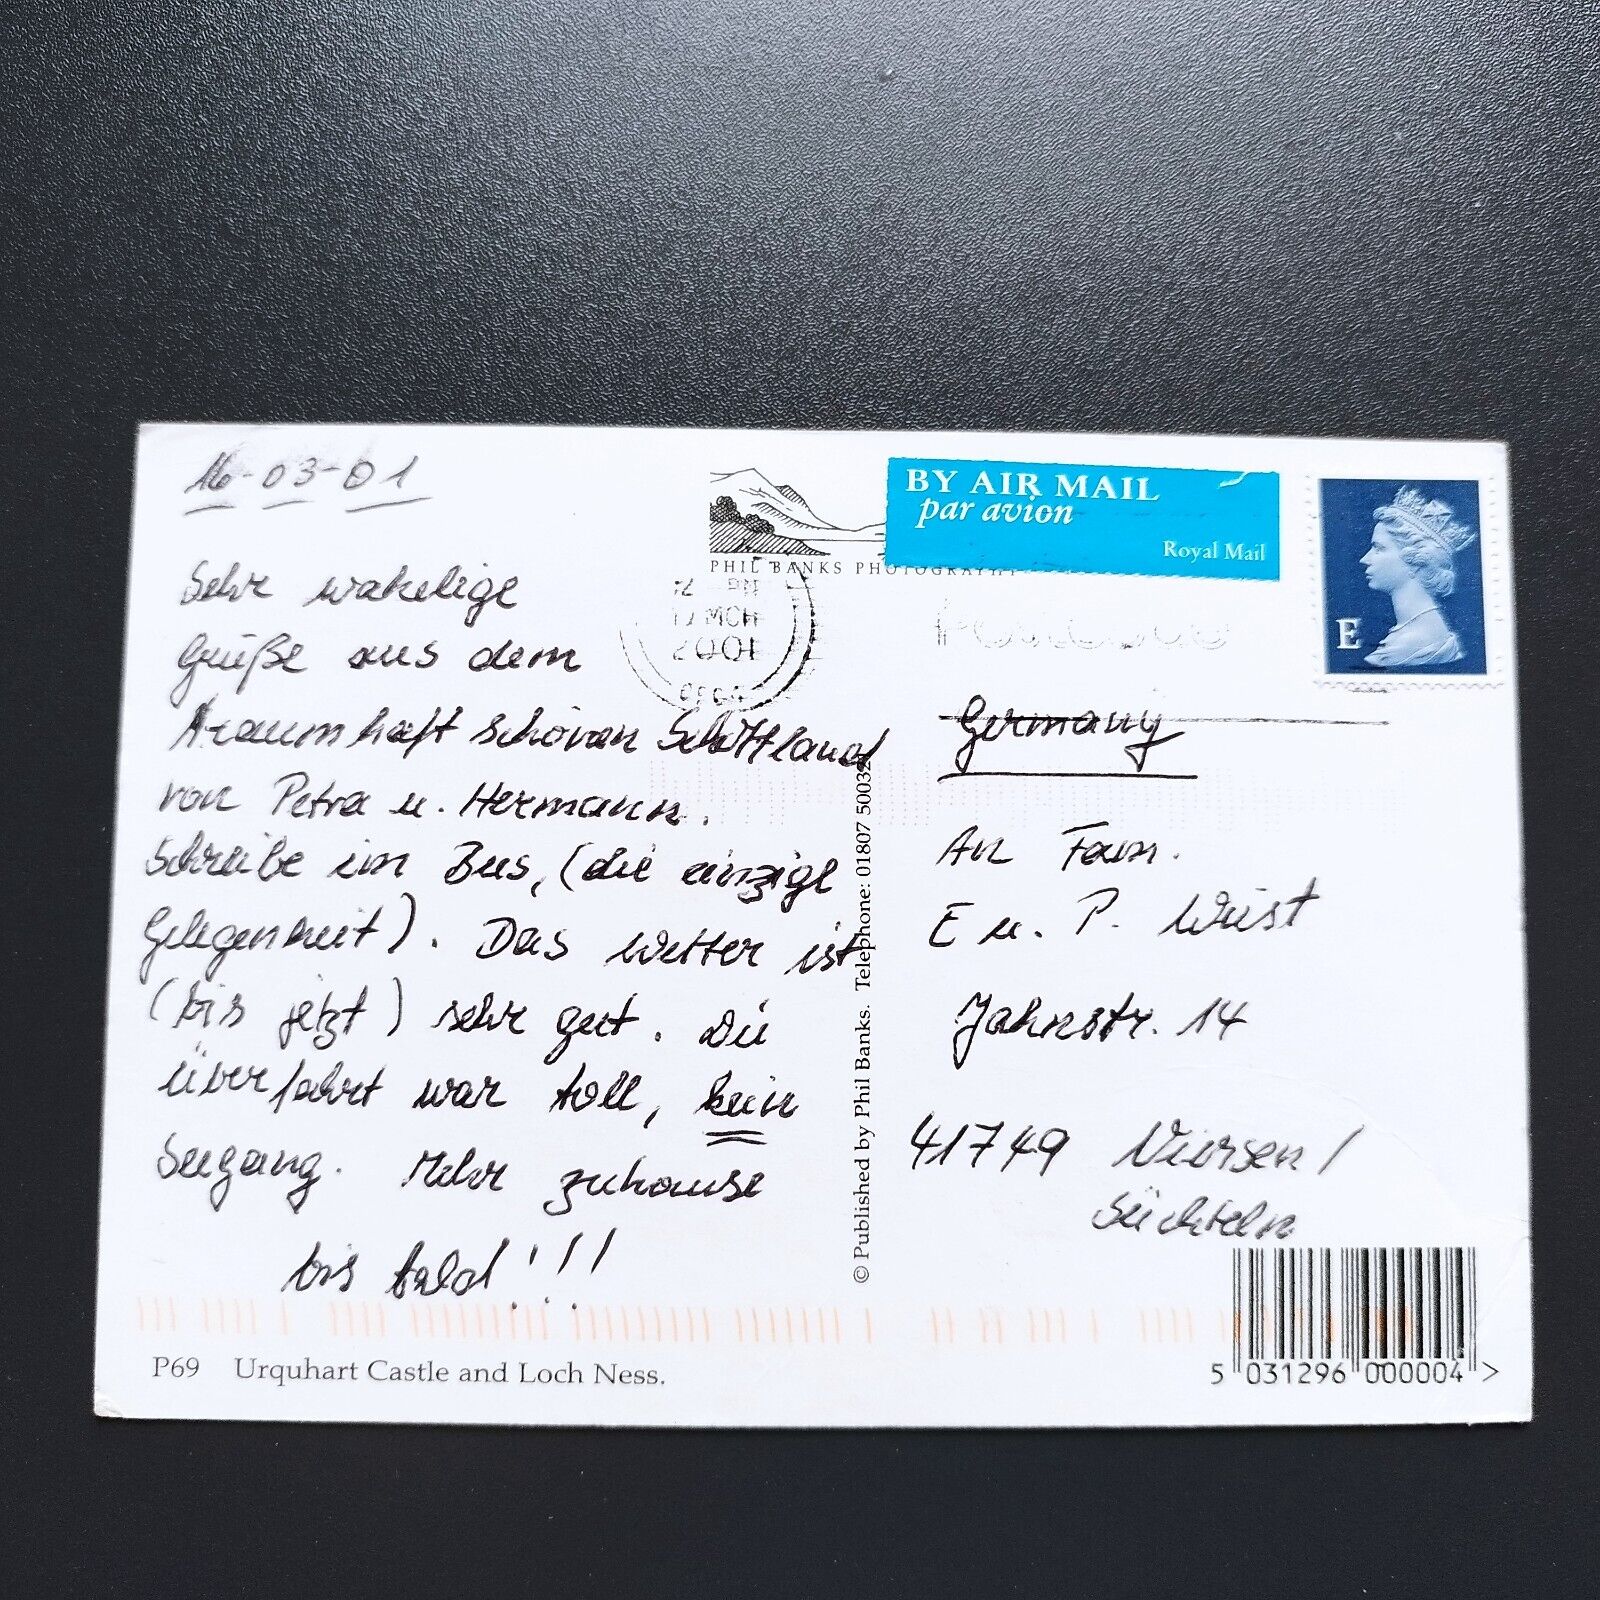 16-03-01
Sehr wakelige
Grüße aus dem
traumhaft schönen Schottland
von Petra u. Hermann.
Schreibe im Bus, (die einzige
Gelegenheit). Das Wetter ist
(bis jetzt) sehr gut. Die
Überfahrt war toll, kein
Seegang. Mehr zuhause
bis bald!!!
P69 Urquhart Castle and Loch Ness.
PHIL BANKS PHOTOGRAPHY
PM
MCH
2001
© Published by Phil Banks. Telephone: 01807 50032
BY AIR MAIL
par avion
Royal Mail
E
Germany
An Fam.
E u. P. Wüst
Jahnstr. 14
41749 Viersen/
Süchteln
5 031296 000004 >